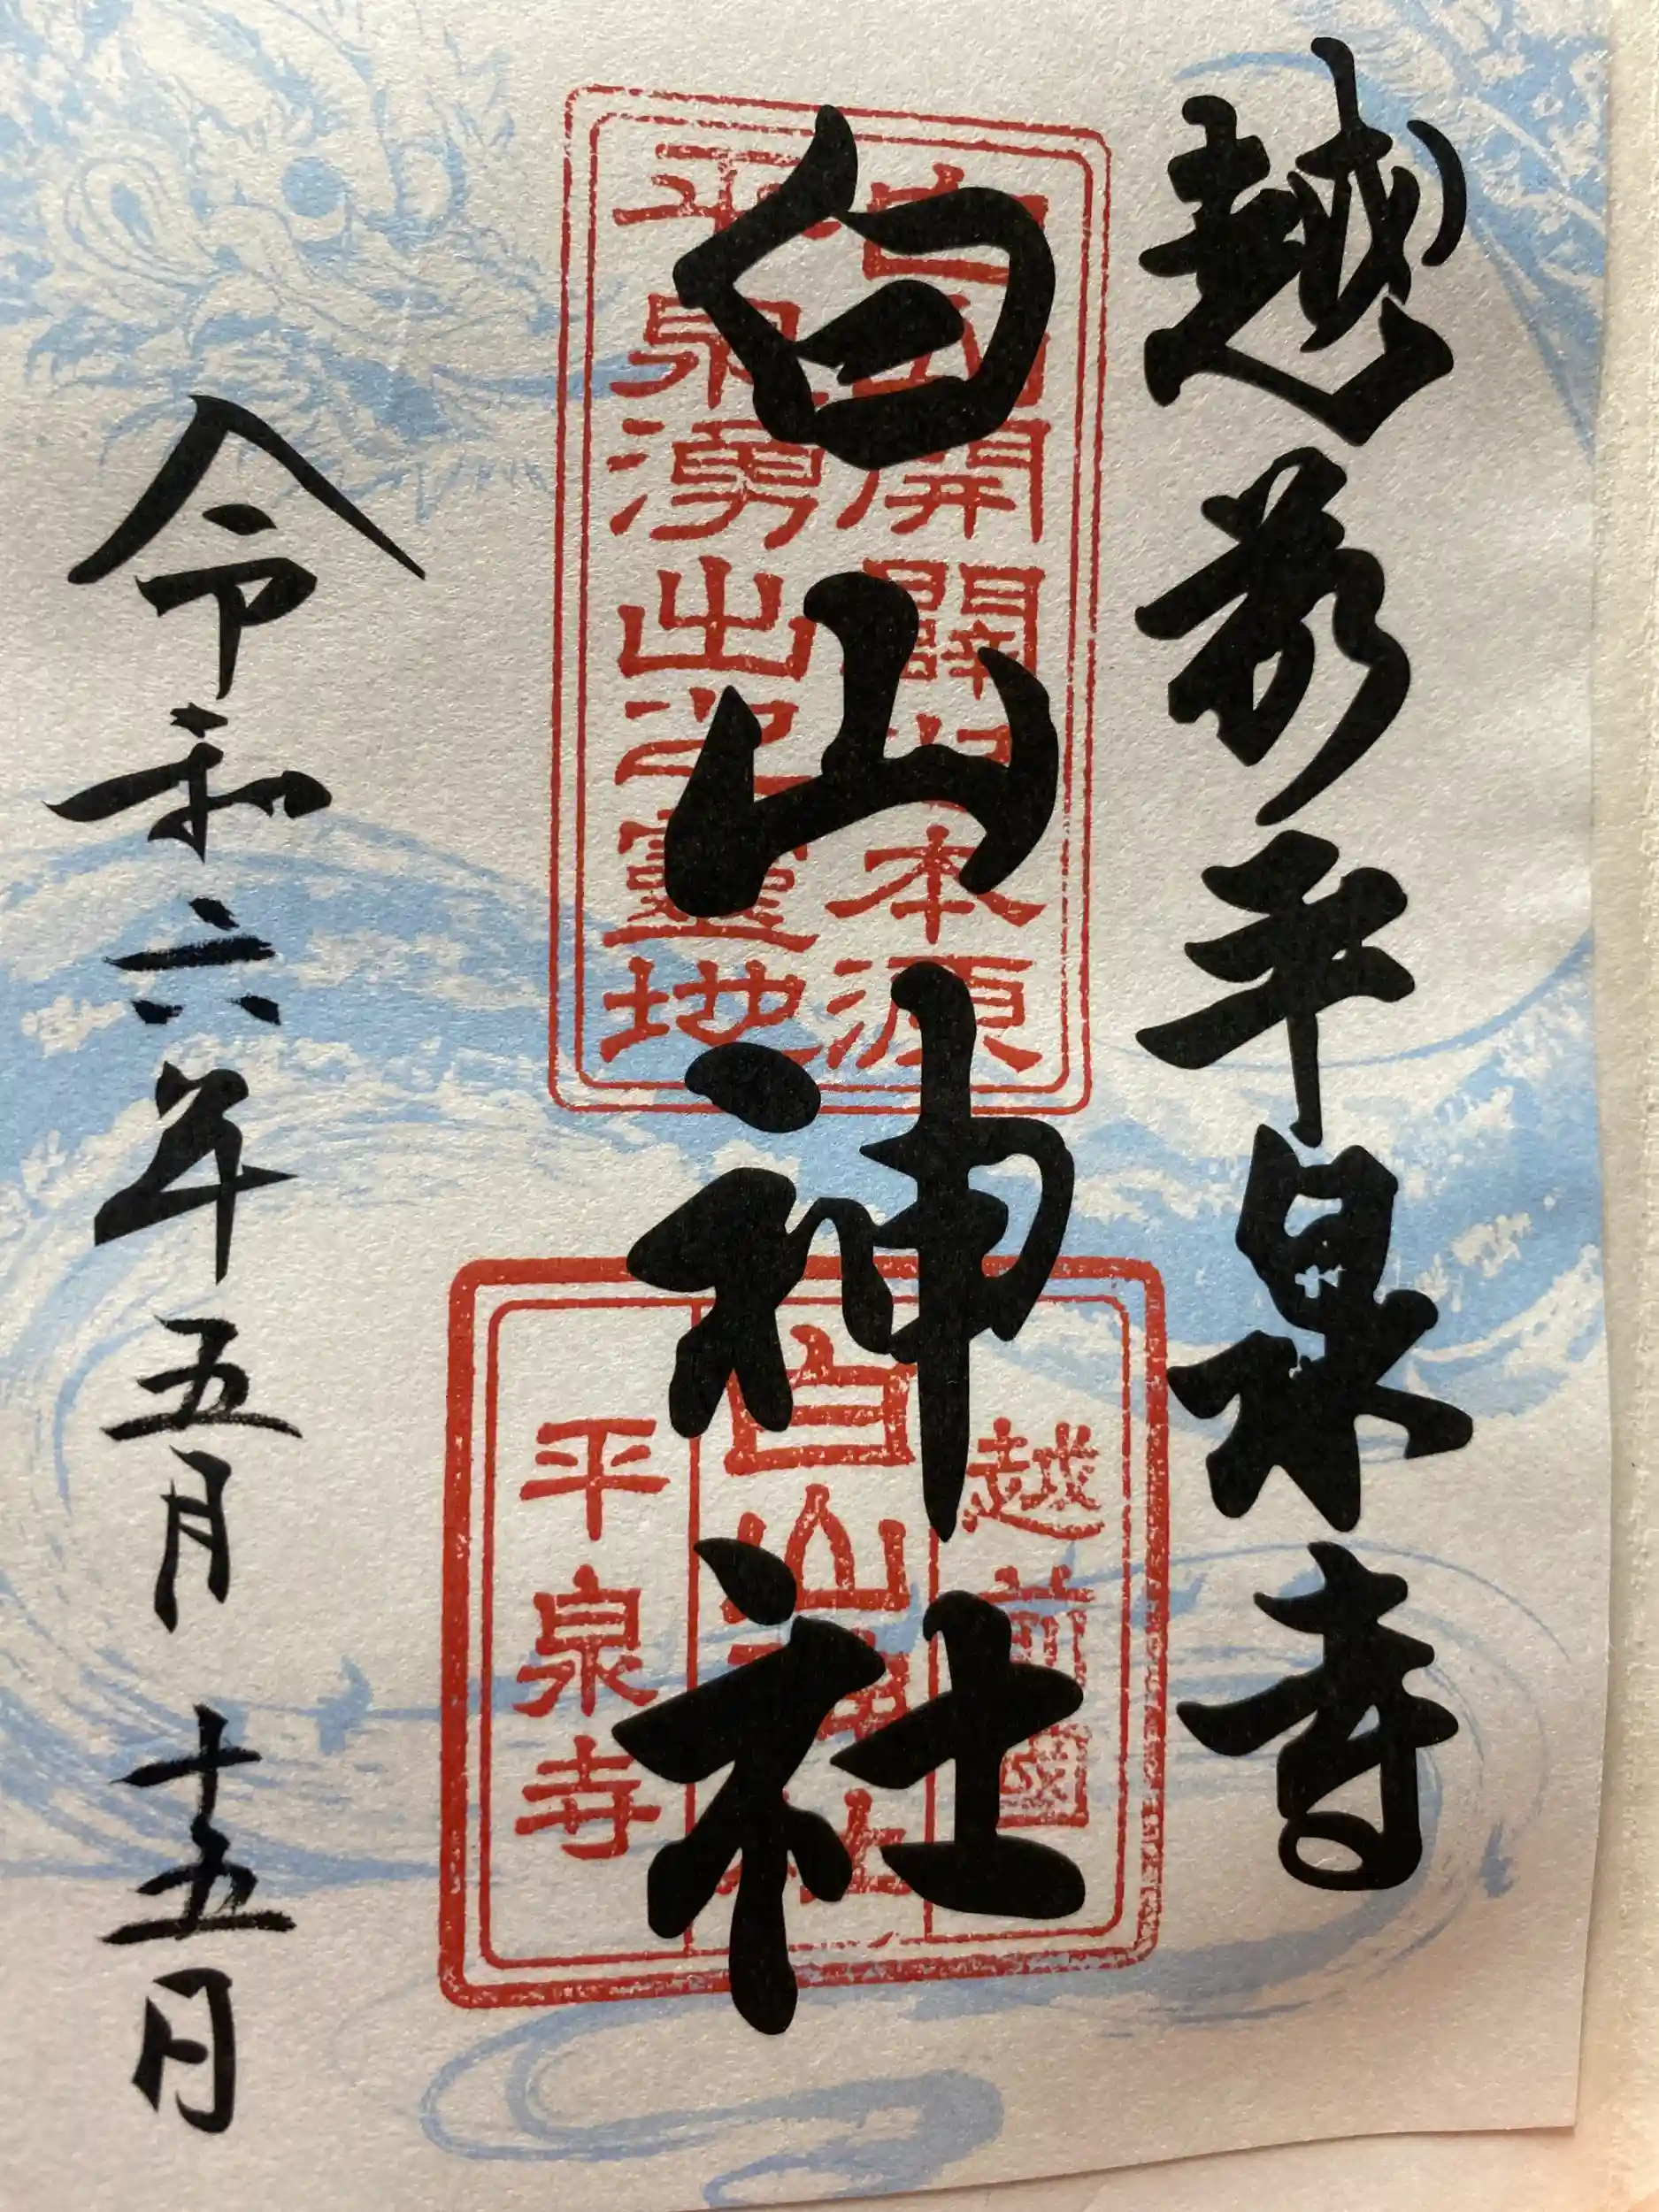 越前平泉寺
白山神社
令和六年五月十五日
白山開闢之本源
平泉湧出之靈地
越前國
白山神社
平泉寺